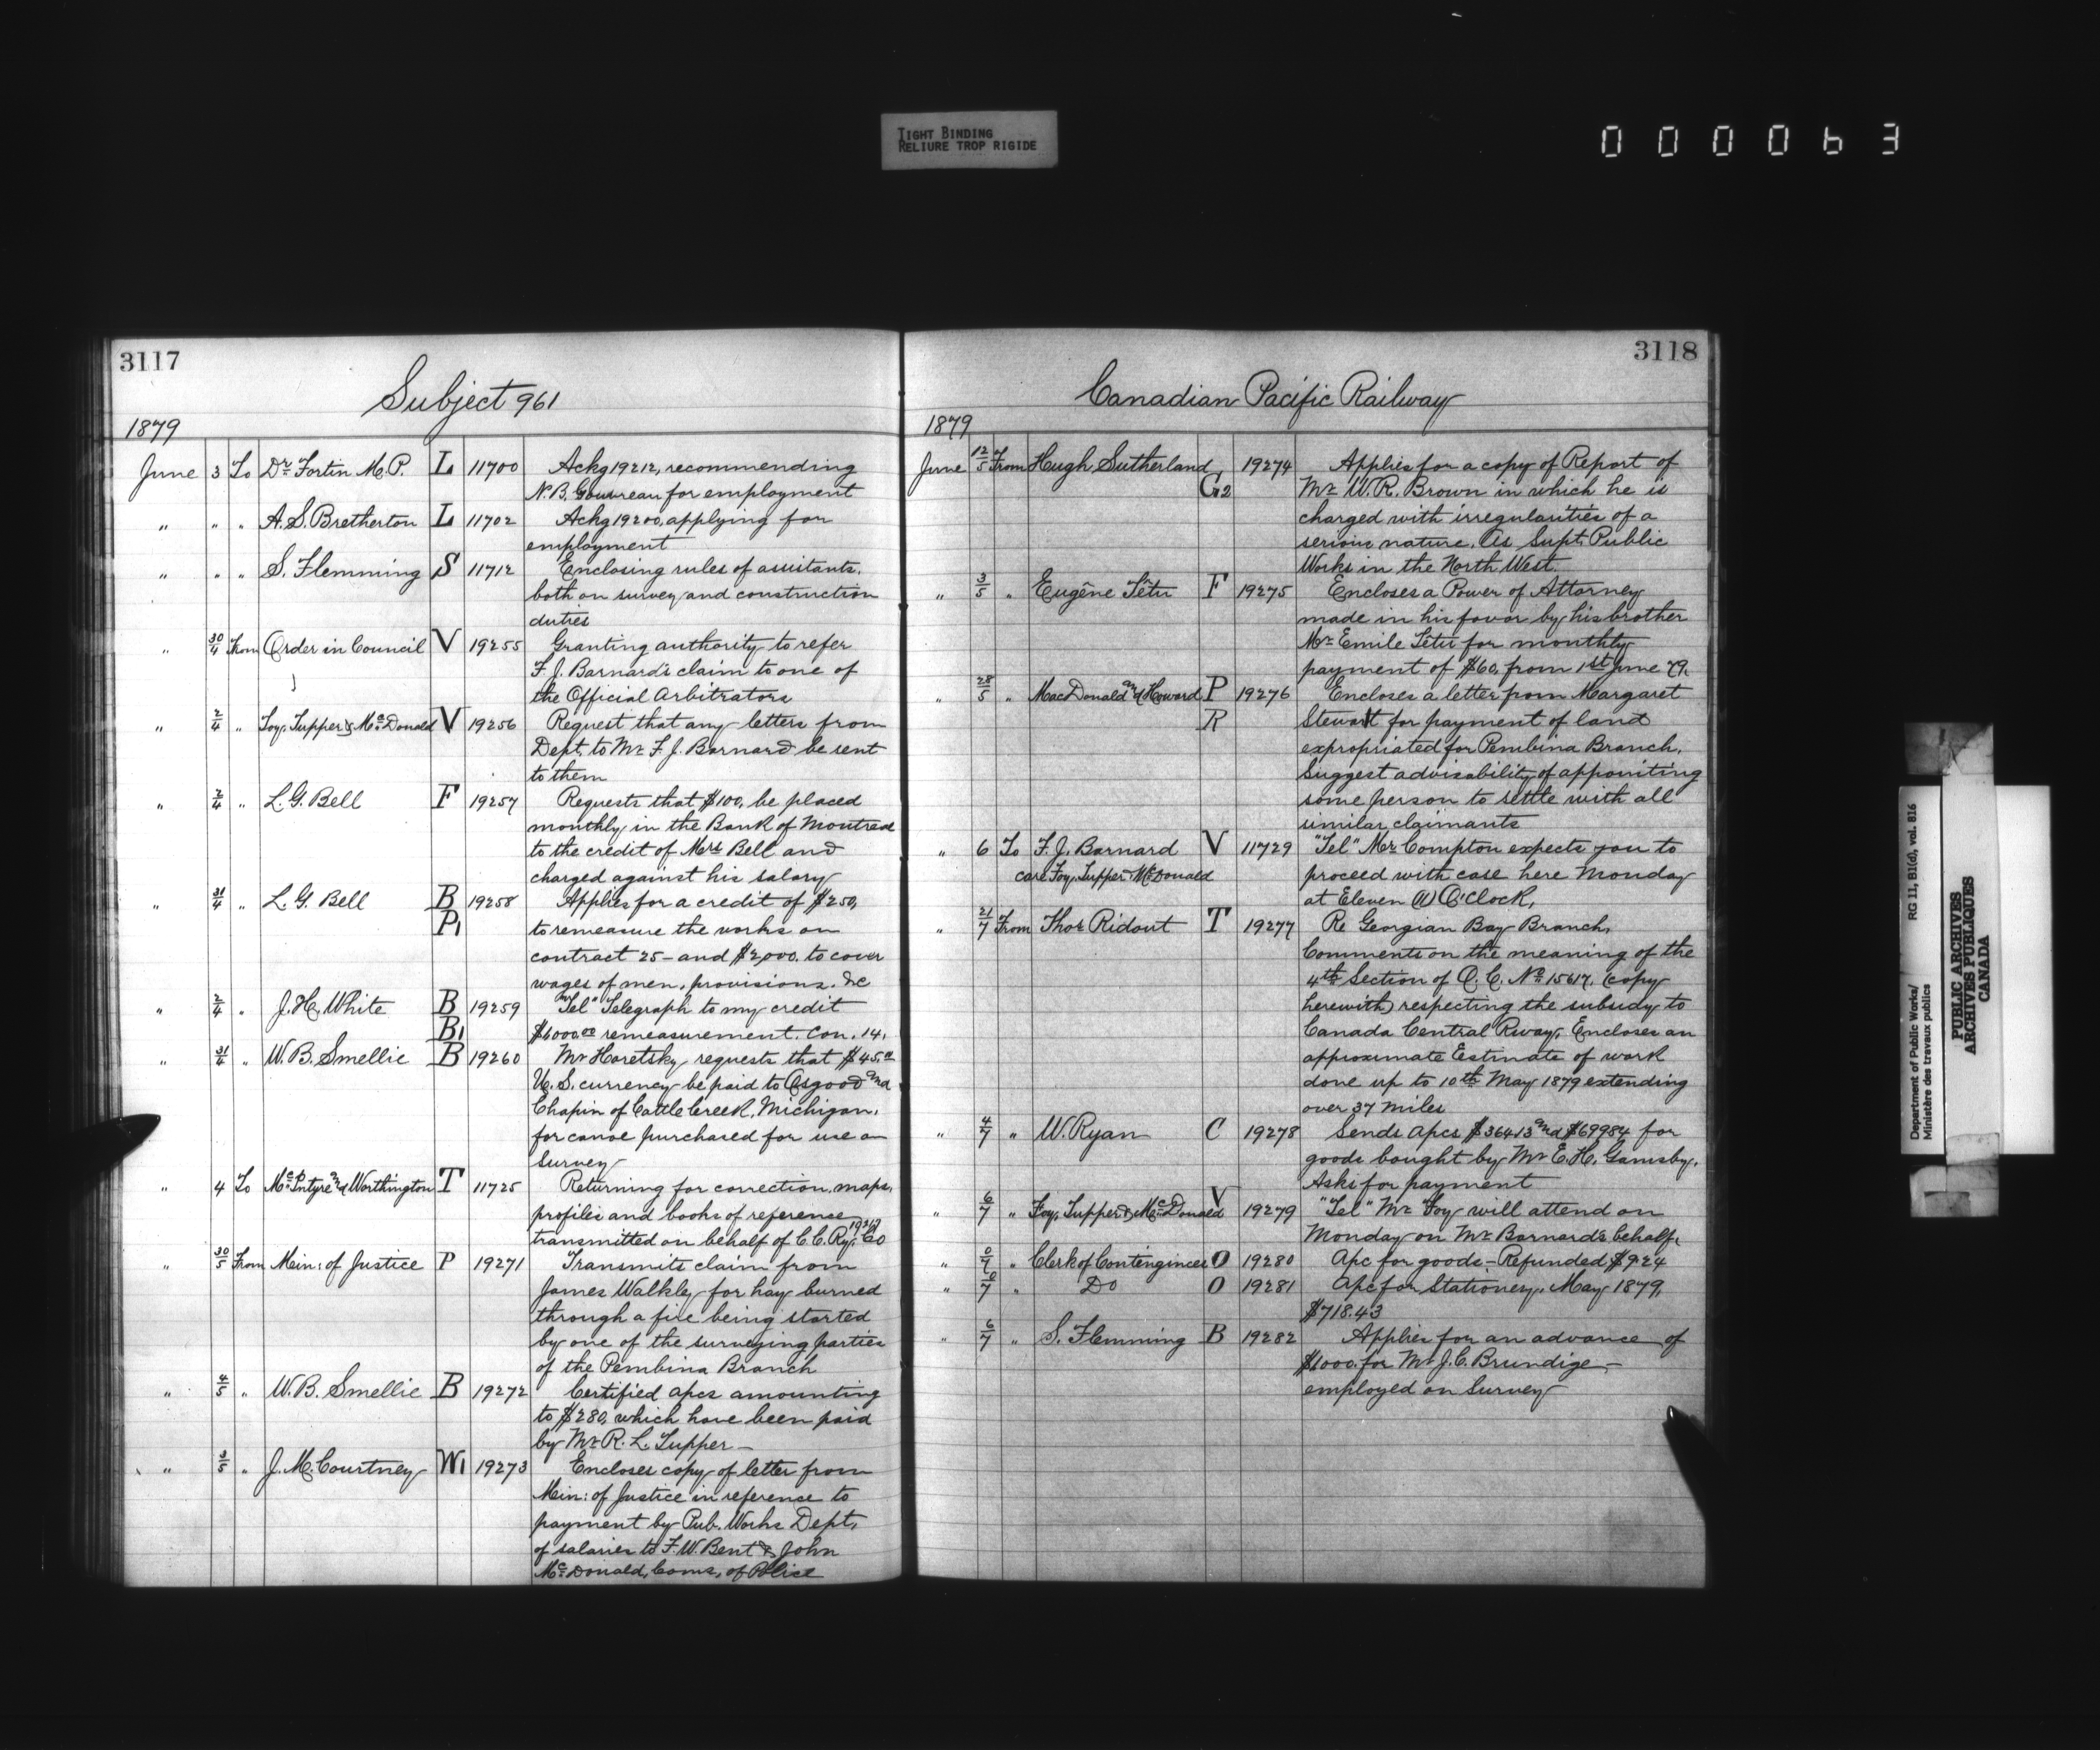 TIGHT BINDING
RELIURE TROP RIGIDE
000063
3117
Subject 961
1879
June 3 To Dr. Fortin M.P. L 11700 Ackg 19212, recommending
N.B. Gouvreau for employment
" " " A.S. Bretherton L 11702 Ackg 19200, applying for
employment
" " " S. Flemming S 11712 Enclosing rules of assistants.
both on survey and construction
duties
" 30/4 From Order in Council V 19255 Granting authority to refer
F.J. Barnard's claim to one of
the Official Arbitrators
" 2/4 " Foy, Tupper & McDonald V 19256 Request that any letters from
Dept. to Mr F.J. Barnard be sent
to them
" 2/4 " L.G. Bell F 19257 Requests that $100, be placed
monthly in the Bank of Montreal
to the credit of Mrs Bell and
charged against his salary
" 31/4 " L.G. Bell B 19258 Applies for a credit of $250,
P1 to remeasure the works on
contract 25 – and $2,000. to cover
wages of men, provisions. &c
" 2/4 " J.H. White B 19259 "Tel" Telegraph to my credit
B1 $6000.00 remeasurement. Con. 14.
" 31/4 " W.B. Smellie B 19260 Mr Horetsky requests that $45.00
U.S. currency be paid to Osgood and
Chapin of Cattle Creek, Michigan.
for canoe purchased for use on
survey
" 4 To McIntyre and Worthington T 11725 Returning for correction, maps,
profiles and books of reference
transmitted on behalf of C.C. Ry. Co
" 30/5 From Min: of Justice P 19271 Transmits claim from
James Walkley for hay burned
through a fire being started
by one of the surveying parties
of the Pembina Branch
" 4/5 " W.B. Smellie B 19272 Certified apcs amounting
to $280, which have been paid
by Mr R.L. Tupper –
" 3/5 " J.M. Courtney W1 19273 Encloses copy of letter from
Min: of Justice in reference to
payment by Pub. Works Dept.
of salaries to F.W. Bent & John
McDonald, Coms, of Police
3118
Canadian Pacific Railway
1879
June 12/5 From Hugh Sutherland 19274 Applies for a copy of Report of
G2 Mr W.R. Brown in which he is
charged with irregularities of a
serious nature. As Supt. Public
Works in the North West.
" 3/5 " Eugêne Têtu F 19275 Encloses a Power of Attorney
made in his favor by his brother
Mr Emile Têtu for monthly
payment of $60, from 1st June 79.
" 28/5 " MacDonald and Howard P 19276 Encloses a letter from Margaret
R Stewart for payment of land
expropriated for Pembina Branch.
Suggest advisability of appointing
some person to settle with all
similar claimants
" 6 To F.J. Barnard V 11729 "Tel" Mr Compton expects you to
care Foy, Tupper & McDonald proceed with case here Monday
at Eleven (11) O'Clock.
" 21/7 From Thos Ridout T 19277 Re Georgian Bay Branch.
Comments on the meaning of the
4th Section of O.C. No 15617, (copy
herewith) respecting the subsidy to
Canada Central Rway, Encloses an
approximate Estimate of work
done up to 10th May 1879 extending
over 37 miles
" 4/7 " W. Ryan C 19278 Sends apcs $364.13 and $699.84 for
goods bought by Mr E.H. Gamsby.
Asks for payment
" 6/7 " Foy, Tupper & McDonald V 19279 "Tel" Mr Foy will attend on
Monday on Mr Barnard's behalf.
" " Clerk of Contingincies O 19280 Apc for goods – Refunded $9.24
" " Do O 19281 Apc for Stationery, May 1879,
$718.43
" 6/7 " S. Flemming B 19282 Applies for an advance of
$1000. for Mr J.C. Brundige –
employed on Survey
Department of Public Works/ RG 11, B1(d), vol. 816
Ministère des travaux publics
PUBLIC ARCHIVES
ARCHIVES PUBLIQUES
CANADA